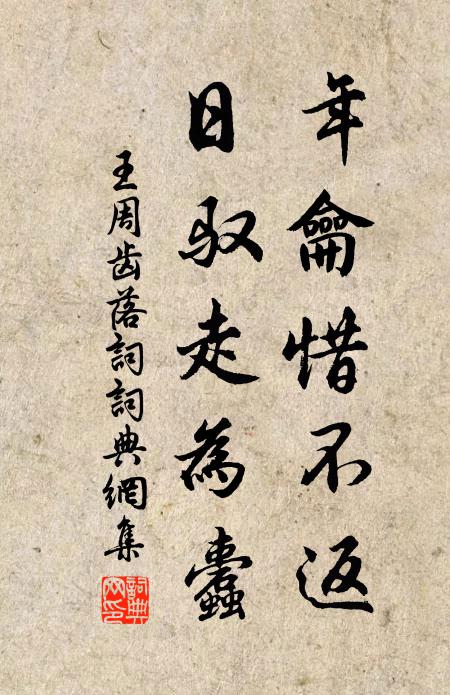 年龠惜不返
日驭走為蠹
王周齿落詞詞典網集
詞典网印